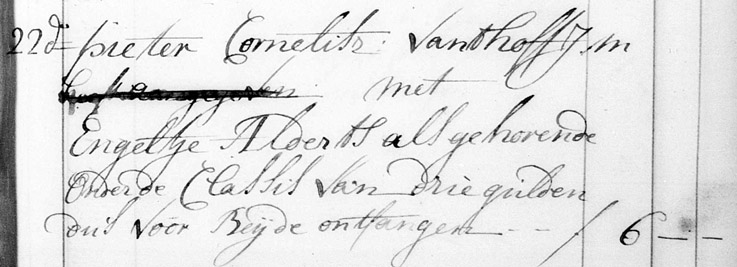 22d= pieter Cornelisz: Vanthoff J:m
met
Engeltje Alderts als gehorende
onder de Classis van drie gulden
dus voor Beÿde ontfangen -- / 6 — —